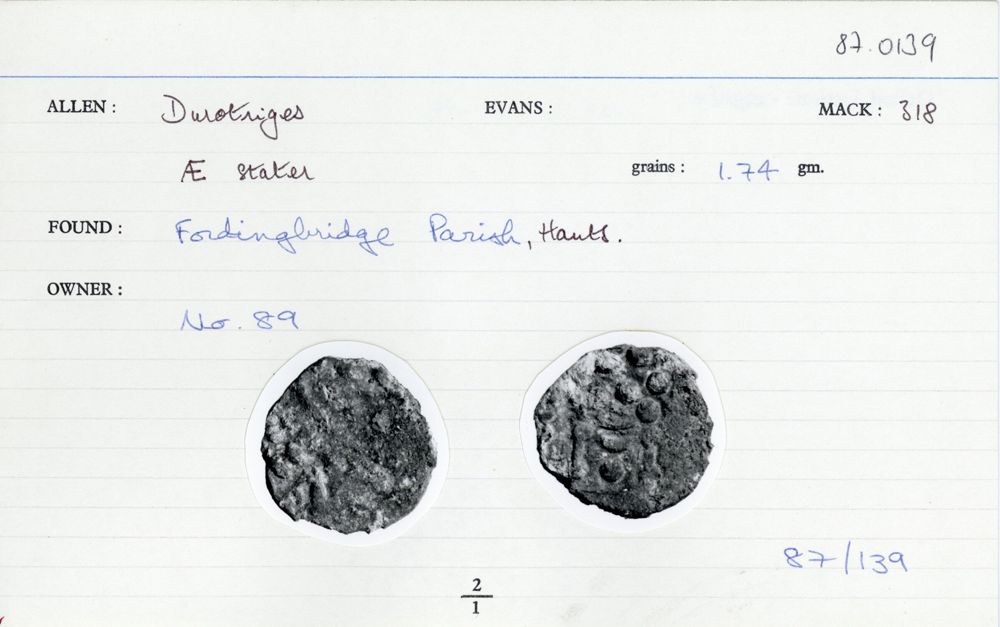 87.0139
ALLEN : Durotriges EVANS : MACK : 318
Æ stater grains : 1.74 gm.
FOUND : Fordingbridge Parish, Hants.
OWNER :
No. 89
87/139
2
1